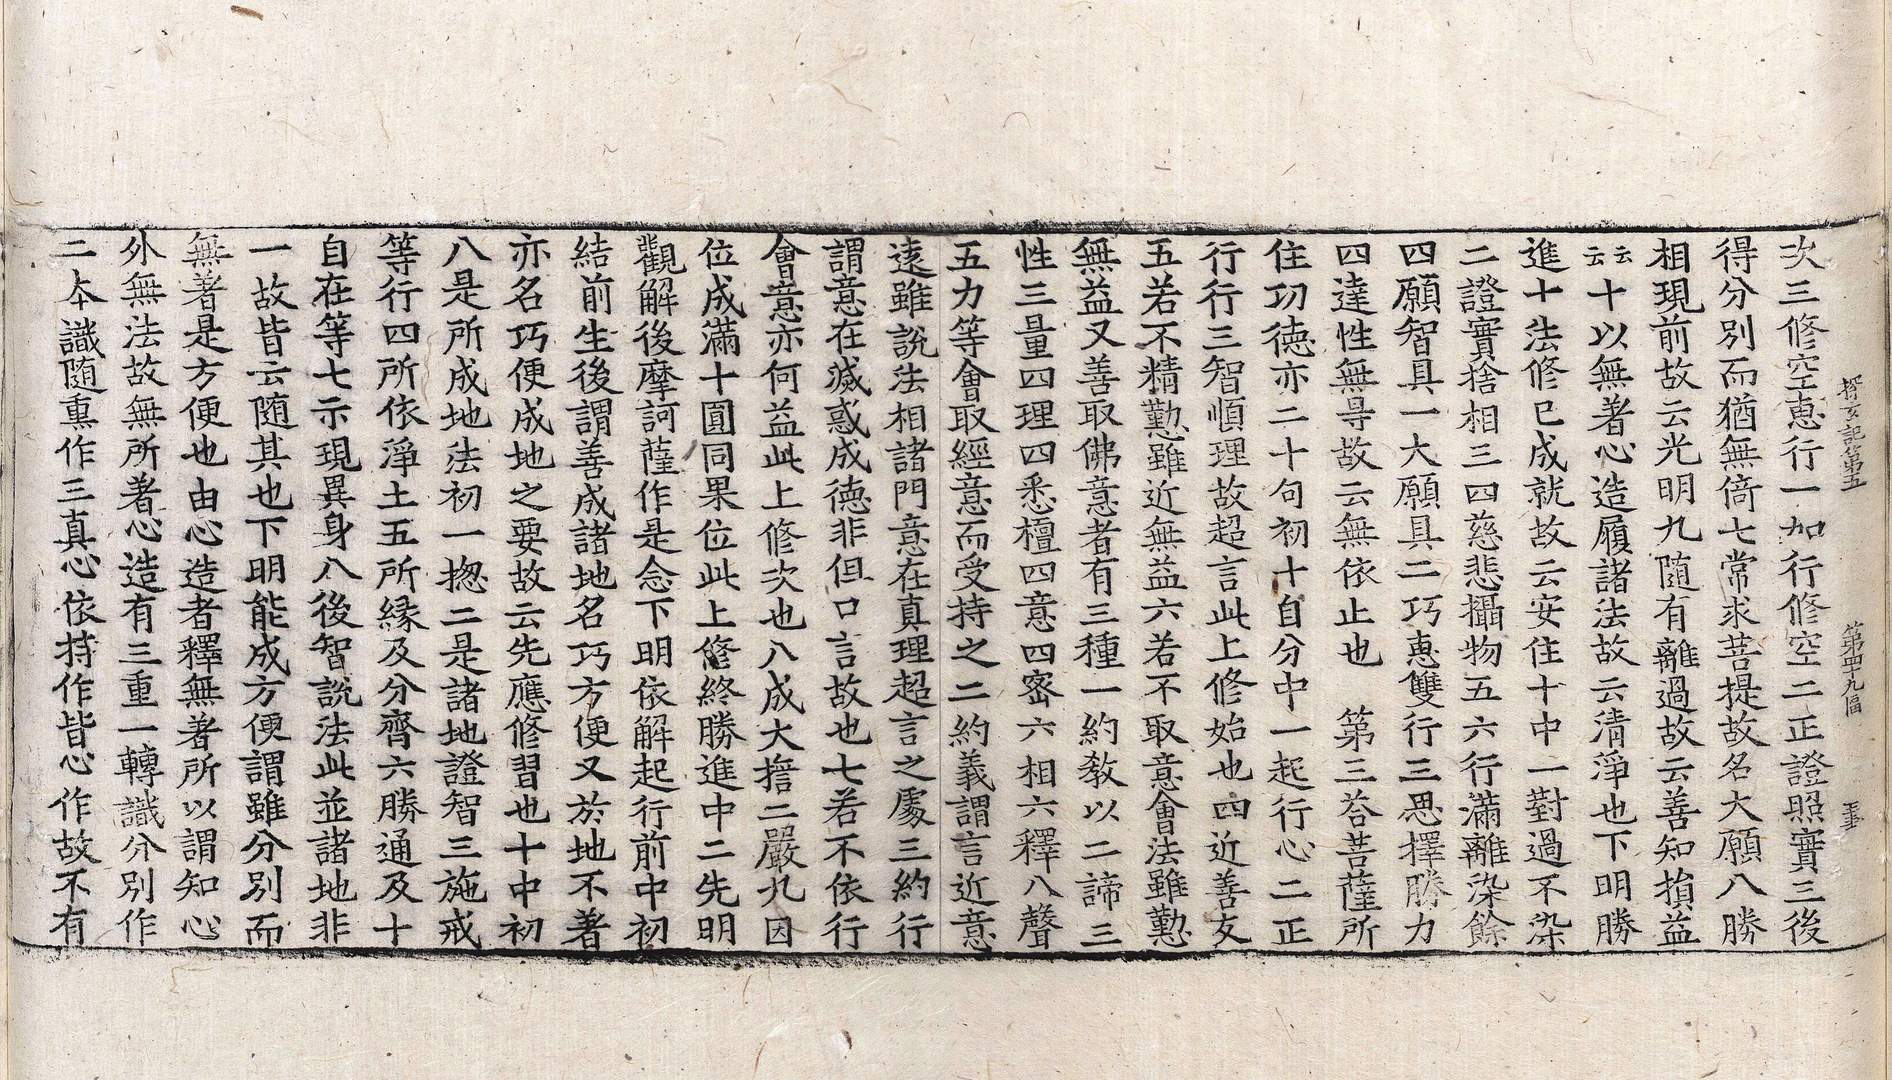 探玄記第五　第四十九幅
次三修空惠行一加行修空二正證照實三後
得分別而猶無倚七常求菩提故名大願八勝
相現前故云光明九隨有離過故云善知損益
云云十以無著心造履諸法故云清淨也下明勝
進十法修已成就故云安住十中一對過不染
二證實捨相三四慈悲攝物五六行滿離染餘
四願智具一大願具二巧惠雙行三思擇勝力
四達性無㝵故云無依止也　第三荅菩薩所
住㓛德亦二十句初十自分中一起行心二正
行行三智順理故超言此上修始也四近善友
五若不精勤雖近無益六若不取意會法雖勤
無益又善取佛意者有三種一約教以二諦三
性三量四理四悉檀四意四密六相六釋八聲
五力等會取經意而受持之二約義謂言近意
遠雖說法相諸門意在真理超言之處三約行
謂意在滅惑成德非但口言故也七若不依行
會意亦何益此上修次也八成大擔二嚴九因
位成滿十圓同果位此上修終勝進中二先明
觀解後摩訶薩作是念下明依解起行前中初
結前生後謂善成諸地名巧方便又於地不著
亦名巧便成地之要故云先應修習也十中初
八是所成地法初一揔二是諸地證智三施戒
等行四所依淨土五所緣及分齊六勝通及十
自在等七示現異身八後智說法此並諸地非
一故皆云隨其也下明能成方便謂雖分別而
無著是方便也由心造者釋無著所以謂知心
外無法故無所著心造有三重一轉識分別作
二本識隨熏作三真心依持作皆心作故不有